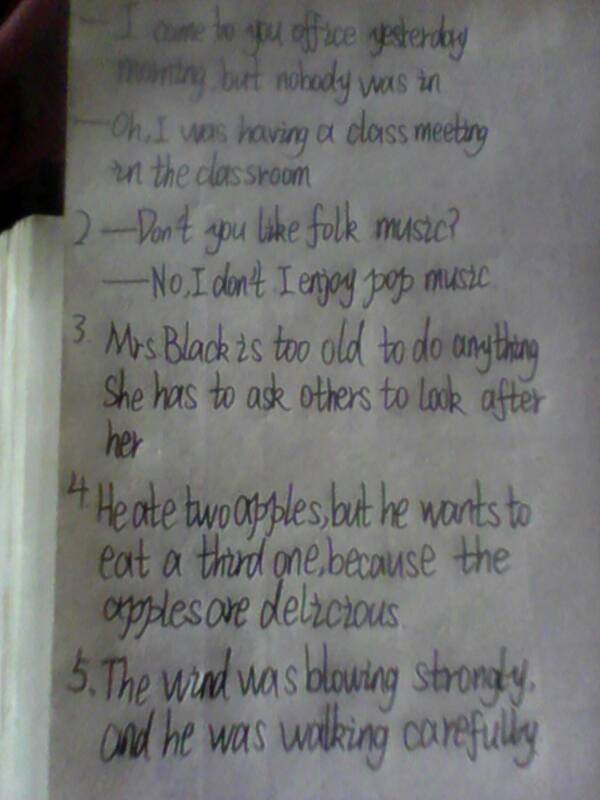 — I come to you office yesterday
morning, but nobody was in
— Oh, I was having a class meeting
in the classroom
2 — Don't you like folk music?
— No, I don't I enjoy pop music
3. Mrs Black is too old to do anything
She has to ask others to look after
her
4. He ate two apples, but he wants to
eat a third one, because the
apples are delicious
5. The wind was blowing strongly,
and he was walking carefully